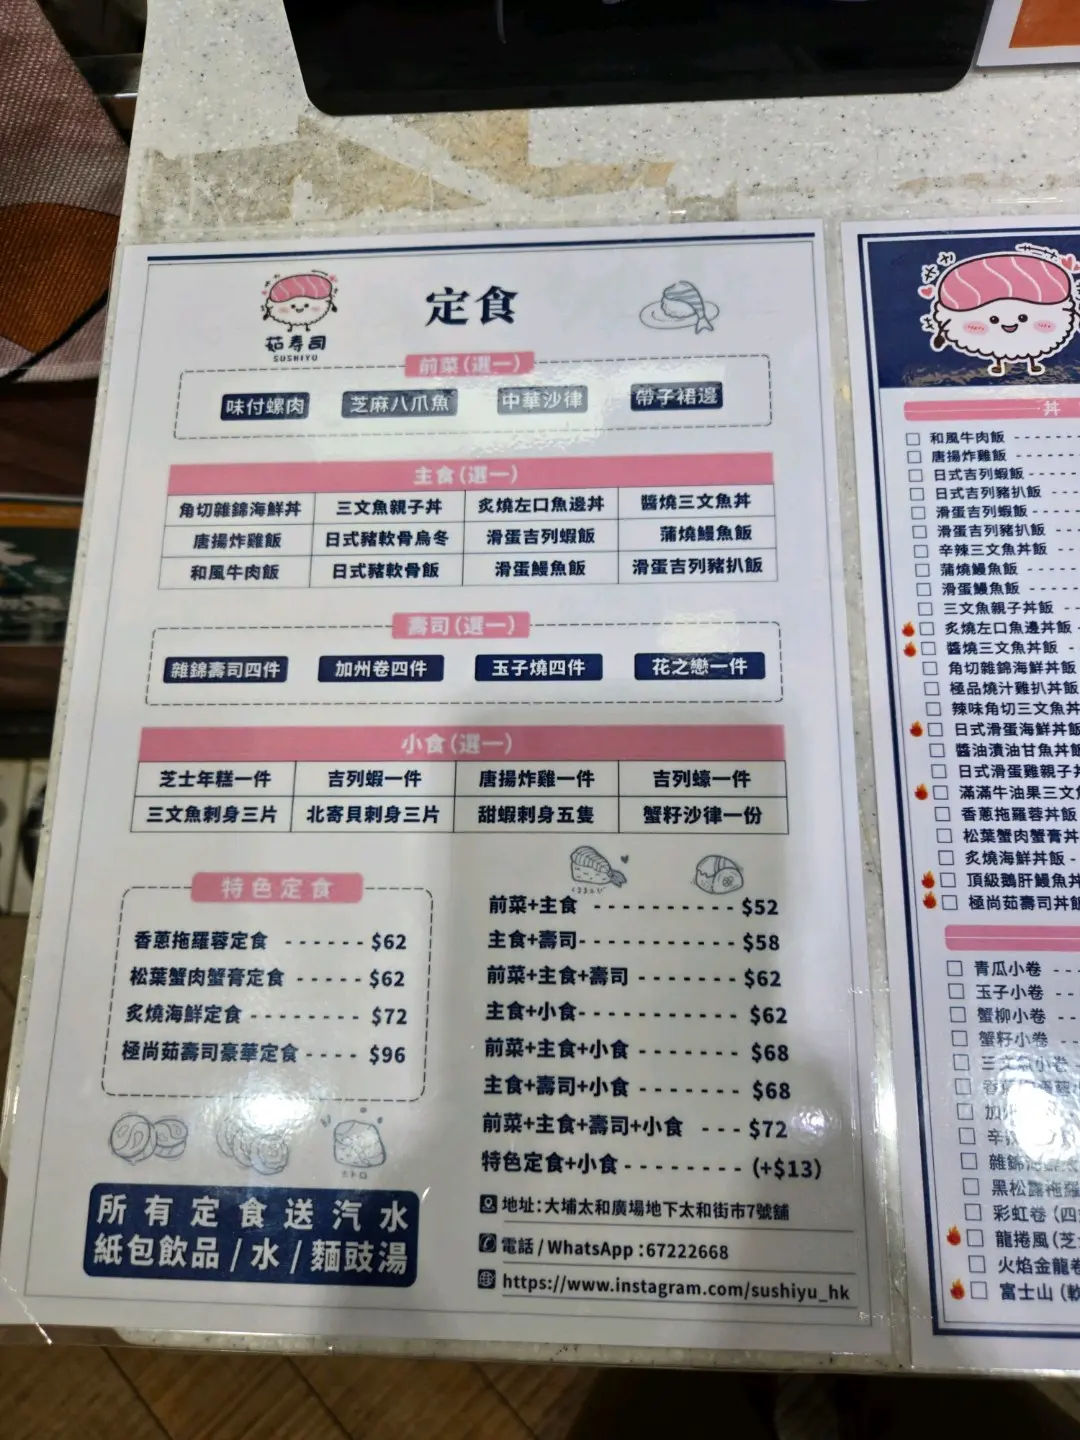 茹寿司
SUSHIYU
定食
前菜(選一)
味付螺肉 芝麻八爪魚 中華沙律 帶子裙邊
主食(選一)
角切雜錦海鮮丼 三文魚親子丼 炙燒左口魚邊丼 醬燒三文魚丼
唐揚炸雞飯 日式豬軟骨烏冬 滑蛋吉列蝦飯 蒲燒鰻魚飯
和風牛肉飯 日式豬軟骨飯 滑蛋鰻魚飯 滑蛋吉列豬扒飯
壽司(選一)
雜錦壽司四件 加州卷四件 玉子燒四件 花之戀一件
小食(選一)
芝士年糕一件 吉列蝦一件 唐揚炸雞一件 吉列蠔一件
三文魚刺身三片 北寄貝刺身三片 甜蝦刺身五隻 蟹籽沙律一份
特色定食
香蔥拖羅蓉定食 ------ $62
松葉蟹肉蟹膏定食 ----- $62
炙燒海鮮定食 -------- $72
極尚茹壽司豪華定食 ---- $96
所有定食送汽水
紙包飲品/水/麵豉湯
前菜+主食 ---------- $52
主食+壽司----------- $58
前菜+主食+壽司 ------- $62
主食+小食----------- $62
前菜+主食+小食 ------- $68
主食+壽司+小食 ------- $68
前菜+主食+壽司+小食 --- $72
特色定食+小食-------- (+$13)
地址:大埔太和廣場地下太和街市7號舖
電話/WhatsApp:67222668
https://www.instagram.com/sushiyu_hk
丼
和風牛肉飯
唐揚炸雞飯
日式吉列蝦飯
日式吉列豬扒飯
滑蛋吉列蝦飯
滑蛋吉列豬扒飯
辛辣三文魚丼飯
蒲燒鰻魚飯
滑蛋鰻魚飯
三文魚親子丼飯
炙燒左口魚邊丼飯
醬燒三文魚丼飯
角切雜錦海鮮丼飯
極品燒汁雞扒丼飯
辣味角切三文魚丼
日式滑蛋海鮮丼飯
醬油漬油甘魚丼飯
日式滑蛋雞親子丼
滿滿牛油果三文魚
香蔥拖羅蓉丼飯
松葉蟹肉蟹膏丼
炙燒海鮮丼飯
頂級鵝肝鰻魚丼
極尚茹壽司丼飯
青瓜小卷
玉子小卷
蟹柳小卷
蟹籽小卷
三文魚小卷
加州
辛辣
雜錦
黑松露拖羅
彩虹卷(四
龍捲風(芝
火焰金龍卷
富士山(軟